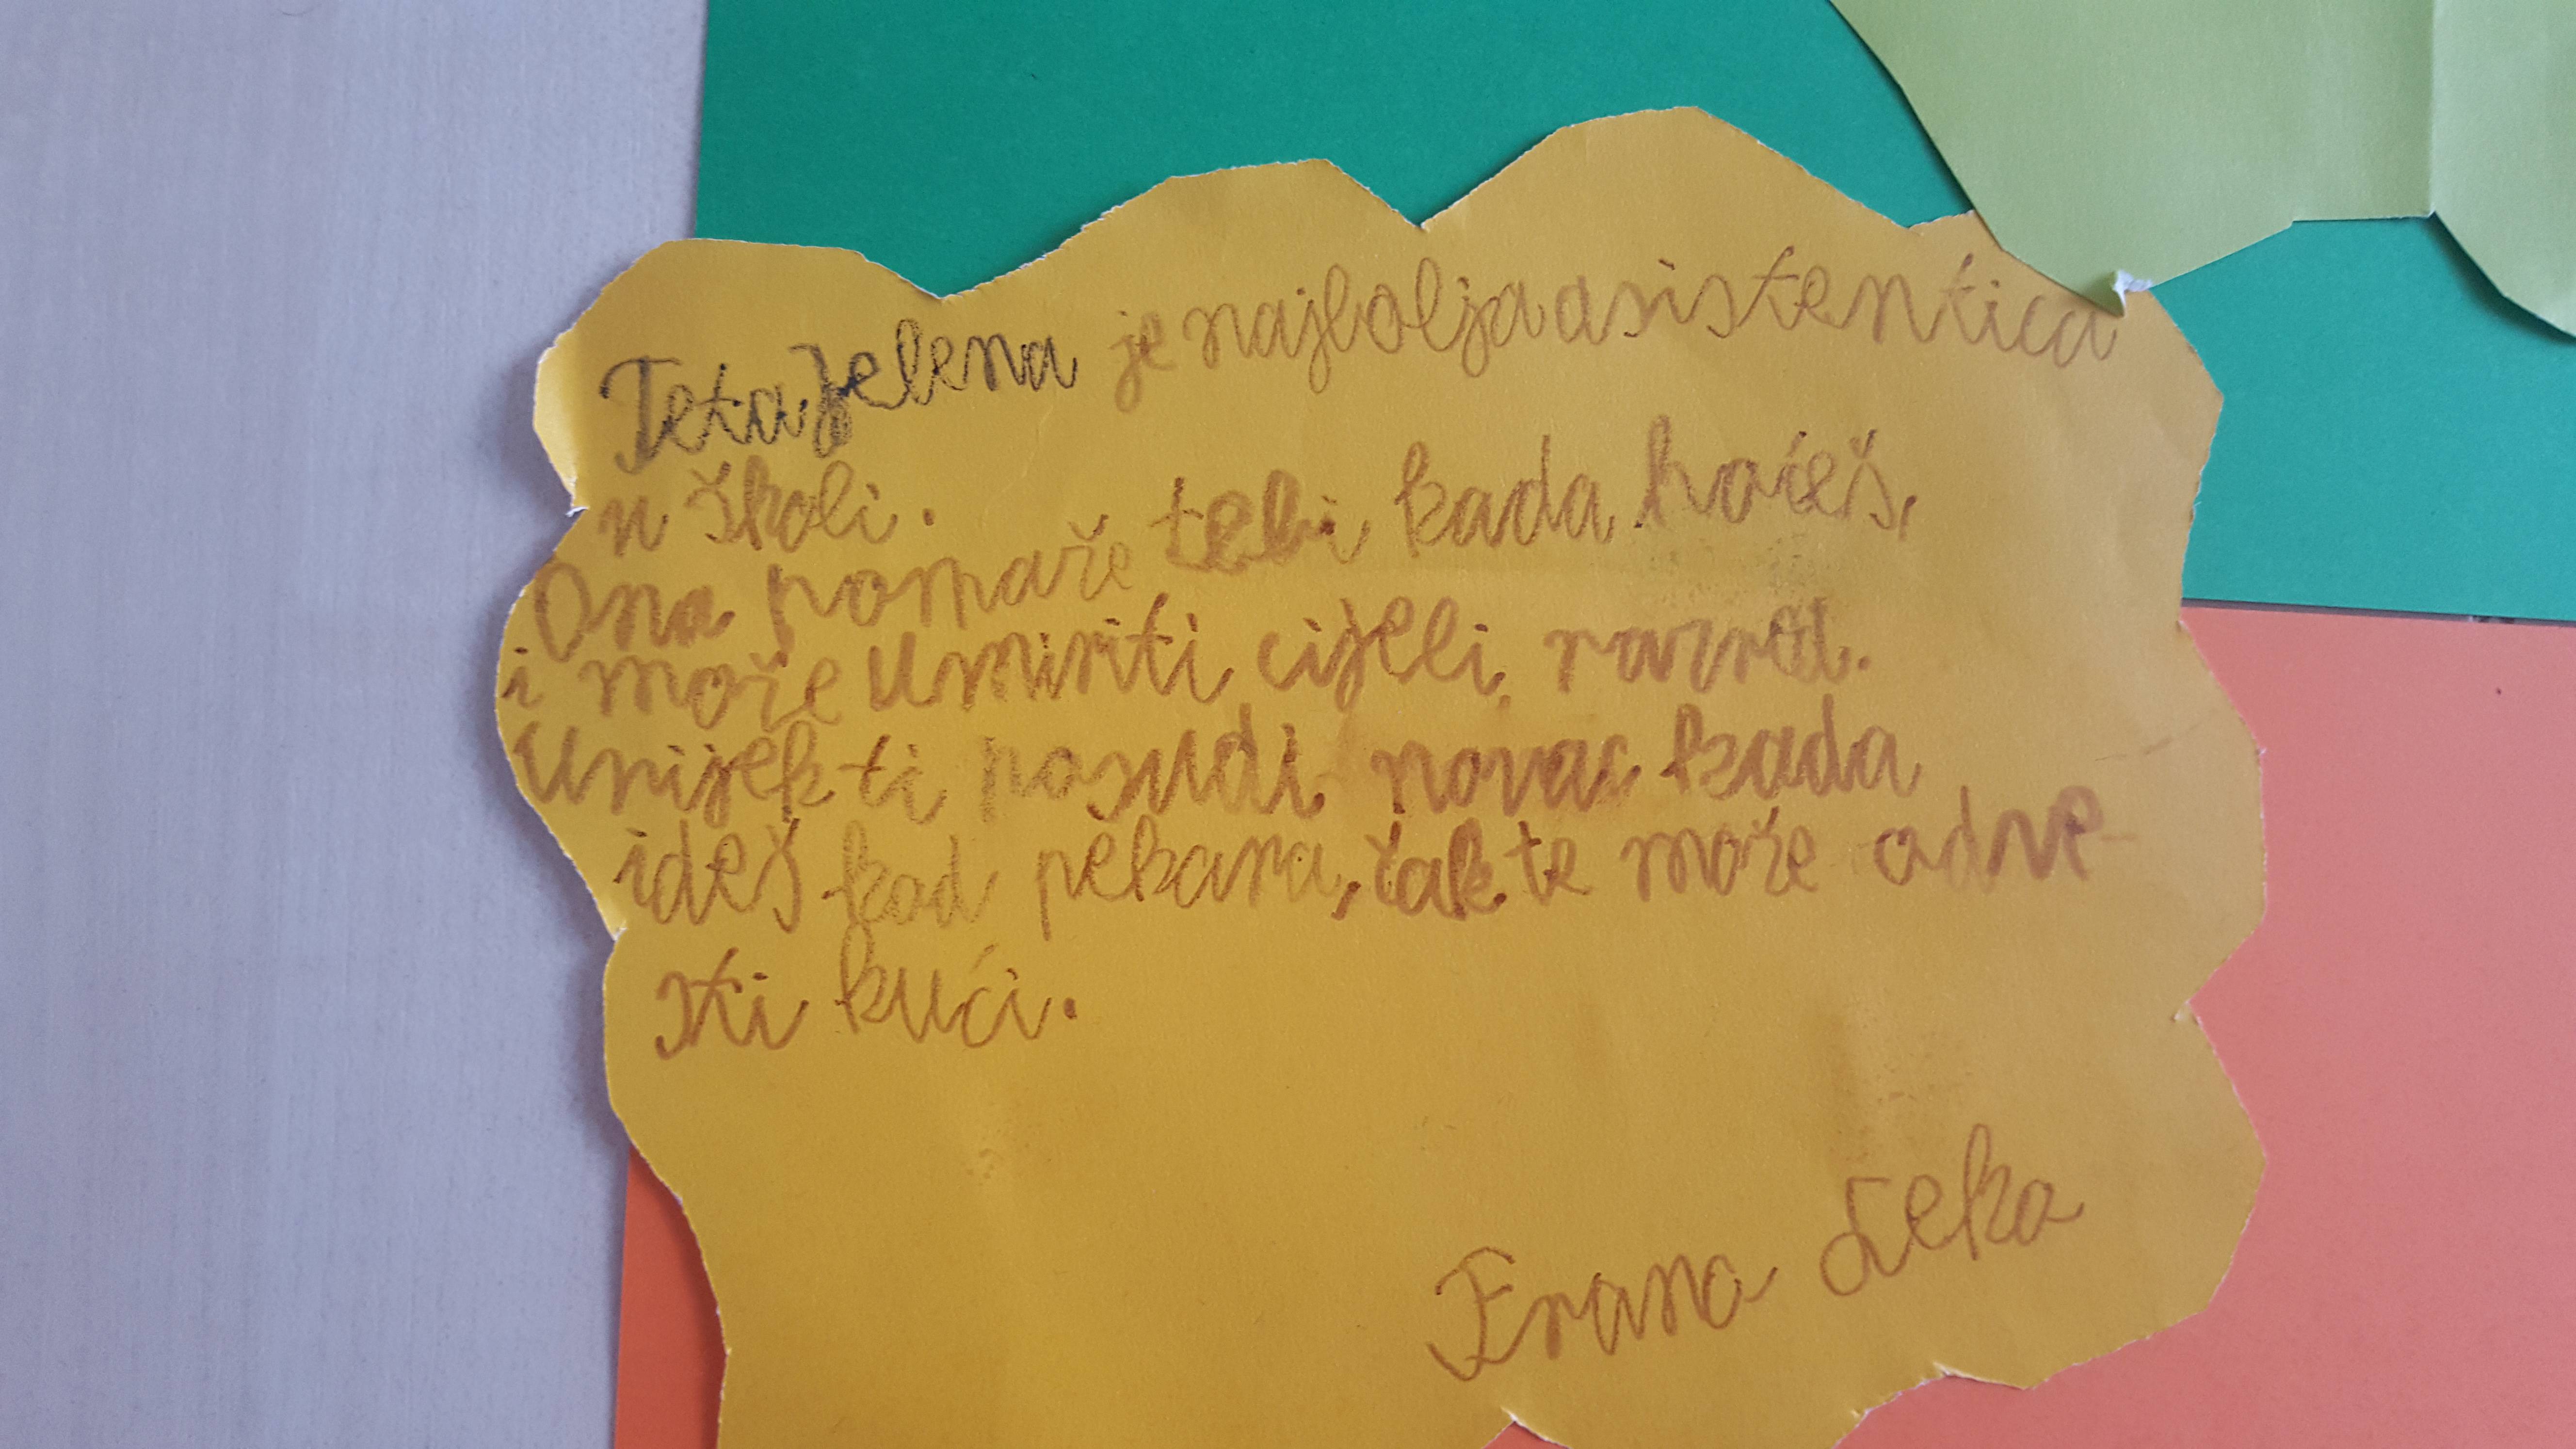 Teta Jelena je najbolja asistentica
u školi.
Ona pomaže tebi kada hoćeš,
i može umiriti cijeli razred.
Uvijek ti posudi novac kada
ideš kod pekara, čak te može odve-
sti kući.
Frana